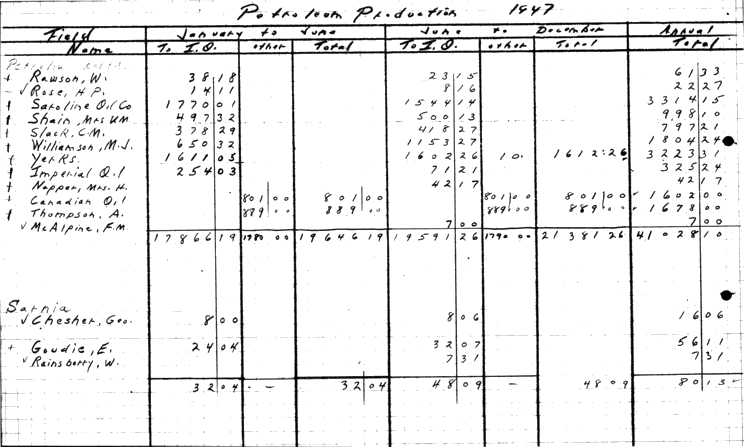 Petroleum Production 1947
Field January to June June to December Annual
Name To I.O. other Total To I.O. other Total Total
Petrolia
+ Rawson, W. 38 18 23 15 61 33
- √ Rose, H.P. 14 11 8 16 22 27
† Saroline Oil Co 1770 01 1544 14 3314 15
† Shain, Mrs WM 497 32 500 13 998 10
† Slack, C.M. 378 29 418 27 797 21
† Williamson, M.J. 650 32 1153 27 1804 24
† Yerks. 1611 05 1602 26 10. 1612:26 3223 31
† Imperial Oil 254 03 71 21 325 24
† Nopper, Mrs. H. 42 17 42 17
+ Canadian Oil 801 00 801 00 801 00 801 00 1602 00
† Thompson, A. 889 .. 889 .. 889 .. 889 .. 1678 00
√ McAlpine, F.M. 7 00 7 00
17866 19 1780 00 19646 19 19591 26 1790 00 21381 26 41028 10
Sarnia
√ Chesher, Geo. 8 00 8 06 16 06
+ Goudie, E. 24 04 32 07 56 11
√ Rainsberry, W. 7 31 7 31
32 04 - - 32 04 48 09 - 48 09 80 13